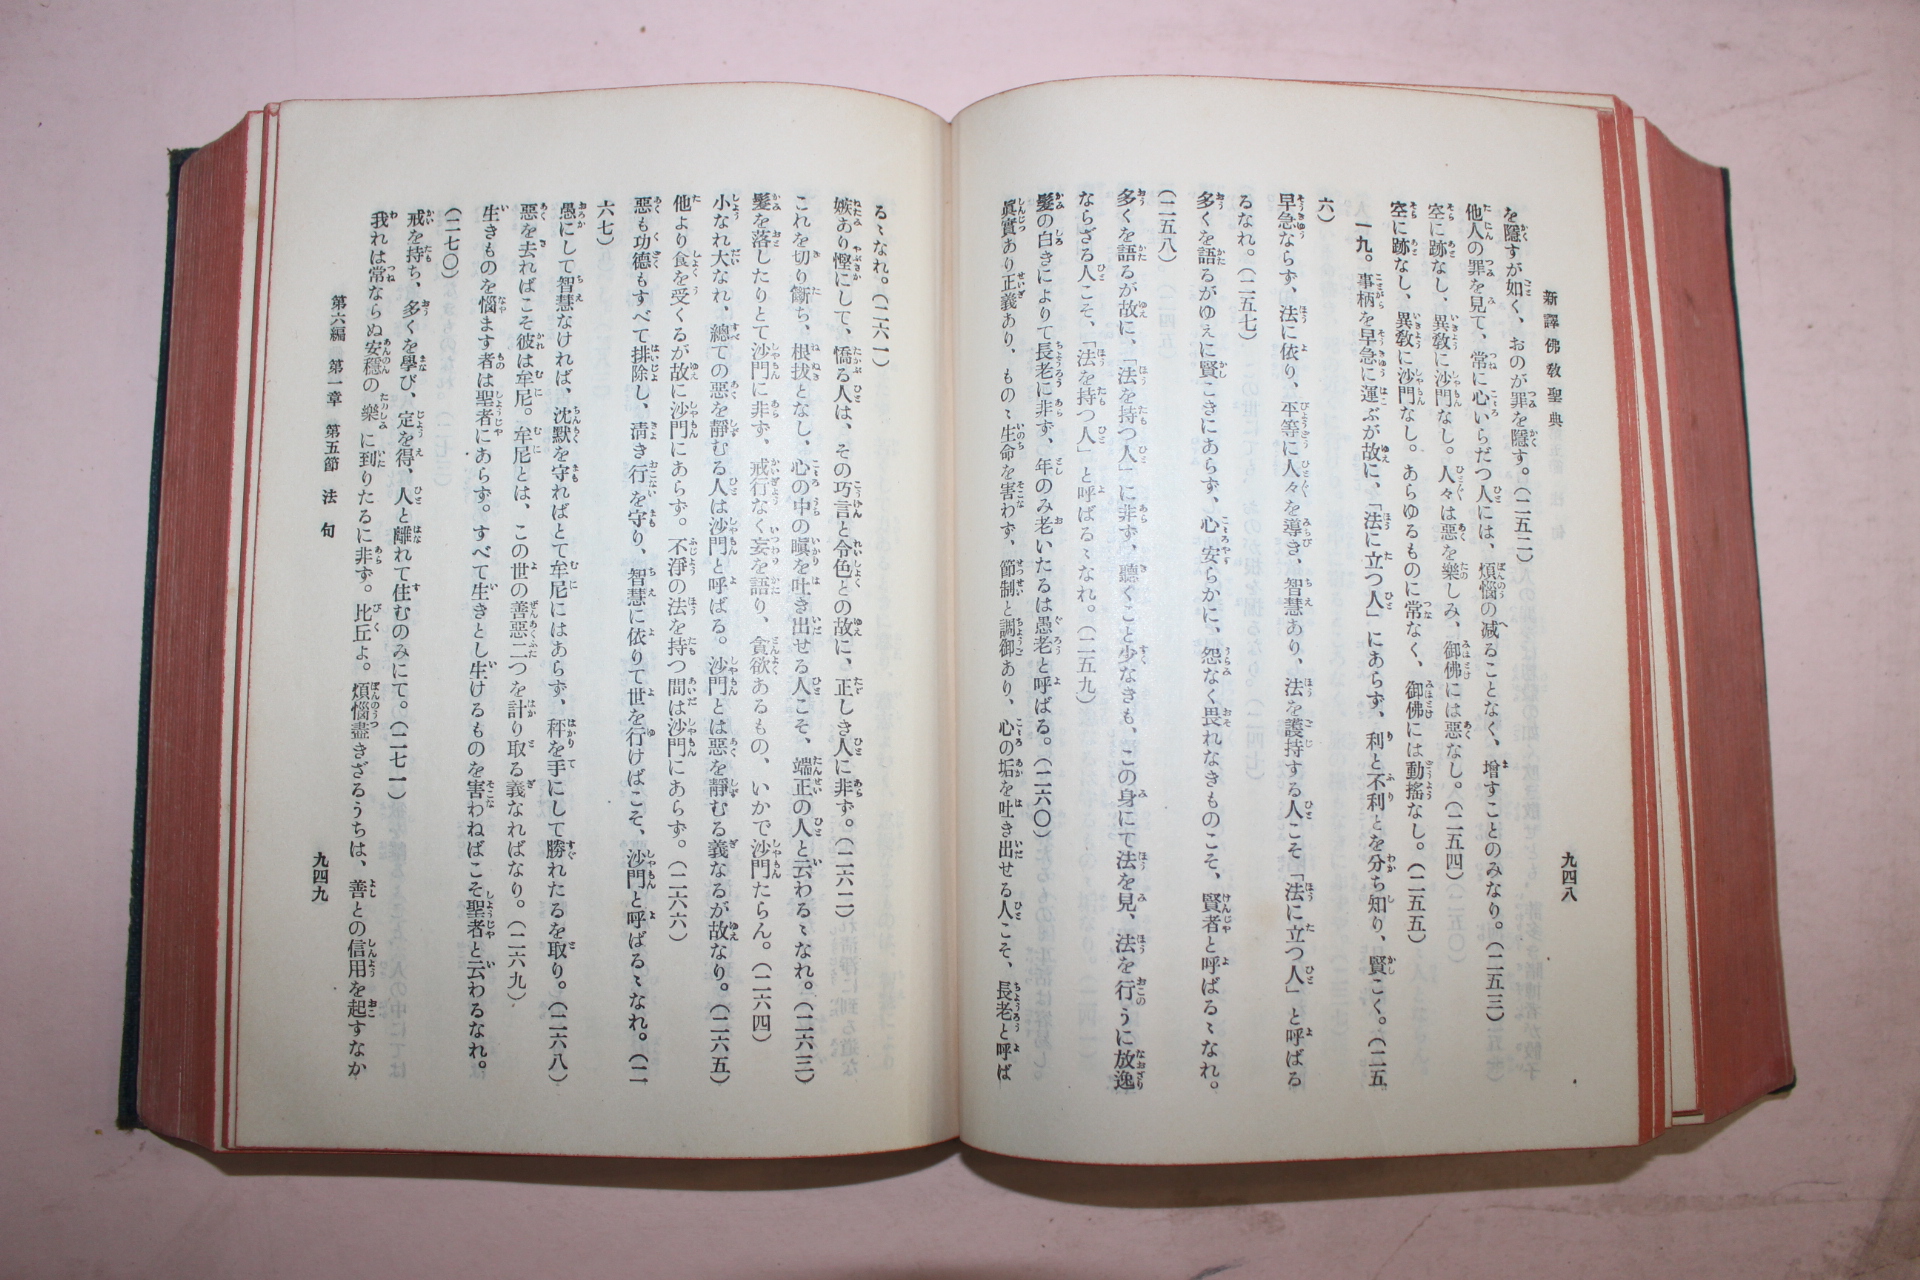 新譯佛敎聖典
九四八
を隱すが如く、おのが罪を隱す。(二五二)
他人の罪を見て、常に心いらだつ人には、煩惱の減ることなく、增すことのみなり。(二五三)
空に跡なし、異敎に沙門なし。人々は惡を樂しみ、御佛には惡なし。(二五四)
空に跡なし、異敎に沙門なし。あらゆるものに常なく、御佛には動搖なし。(二五五)
一九。事柄を早急に運ぶが故に、「法に立つ人」にあらず、利と不利とを分ち知り、賢こく。(二五
六)
早急ならず、法に依り、平等に人々を導き、智慧あり、法を護持する人こそ「法に立つ人」と呼ばる
るなれ。(二五七)
多くを語るがゆえに賢こきにあらず、心安らかに、怨なく畏れなきものこそ、賢者と呼ばるゝなれ。
(二五八)
多くを語るが故に、「法を持つ人」に非ず、聽くこと少なきも、この身にて法を見、法を行うに放逸
ならざる人こそ、「法を持つ人」と呼ばるゝなれ。(二五九)
髮の白きによりて長老に非ず、年のみ老いたるは愚老と呼ばる。(二六〇)
眞實あり正義あり、ものゝ生命を害わず、節制と調御あり、心の垢を吐き出せる人こそ、長老と呼ば
るゝなれ。(二六一)
嫉あり慳にして、憍る人は、その巧言と令色との故に、正しき人に非ず。(二六二)
これを切り斷ち、根拔となし、心の中の瞋を吐き出せる人こそ、端正の人と云わるゝなれ。(二六三)
髮を落したりとて沙門に非ず、戒行なく妄を語り、貪欲あるもの、いかで沙門たらん。(二六四)
小なれ大なれ、總ての惡を靜むる人は沙門と呼ばる。沙門とは惡を靜むる義なるが故なり。(二六五)
他より食を受くるが故に沙門にあらず。不淨の法を持つ間は沙門にあらず。(二六六)
惡も功德もすべて排除し、淸き行を守り、智慧に依りて世を行けばこそ、沙門と呼ばるゝなれ。(二
六七)
愚にして智慧なければ、沈默を守ればとて牟尼にはあらず、秤を手にして勝れたるを取り。(二六八)
惡を去ればこそ彼は牟尼。牟尼とは、この世の善惡二つを計り取る義なればなり。(二六九)
生きものを惱ます者は聖者にあらず。すべて生きとし生けるものを害わねばこそ聖者と云わるなれ。
(二七〇)
戒を持ち、多くを學び、定を得、人と離れて住むのみにて。(二七一)
我れは常ならぬ安穩の樂に到りたるに非ず。比丘よ。煩惱盡きざるうちは、善との信用を起すなか
第六編 第一章 第五節 法句
九四九